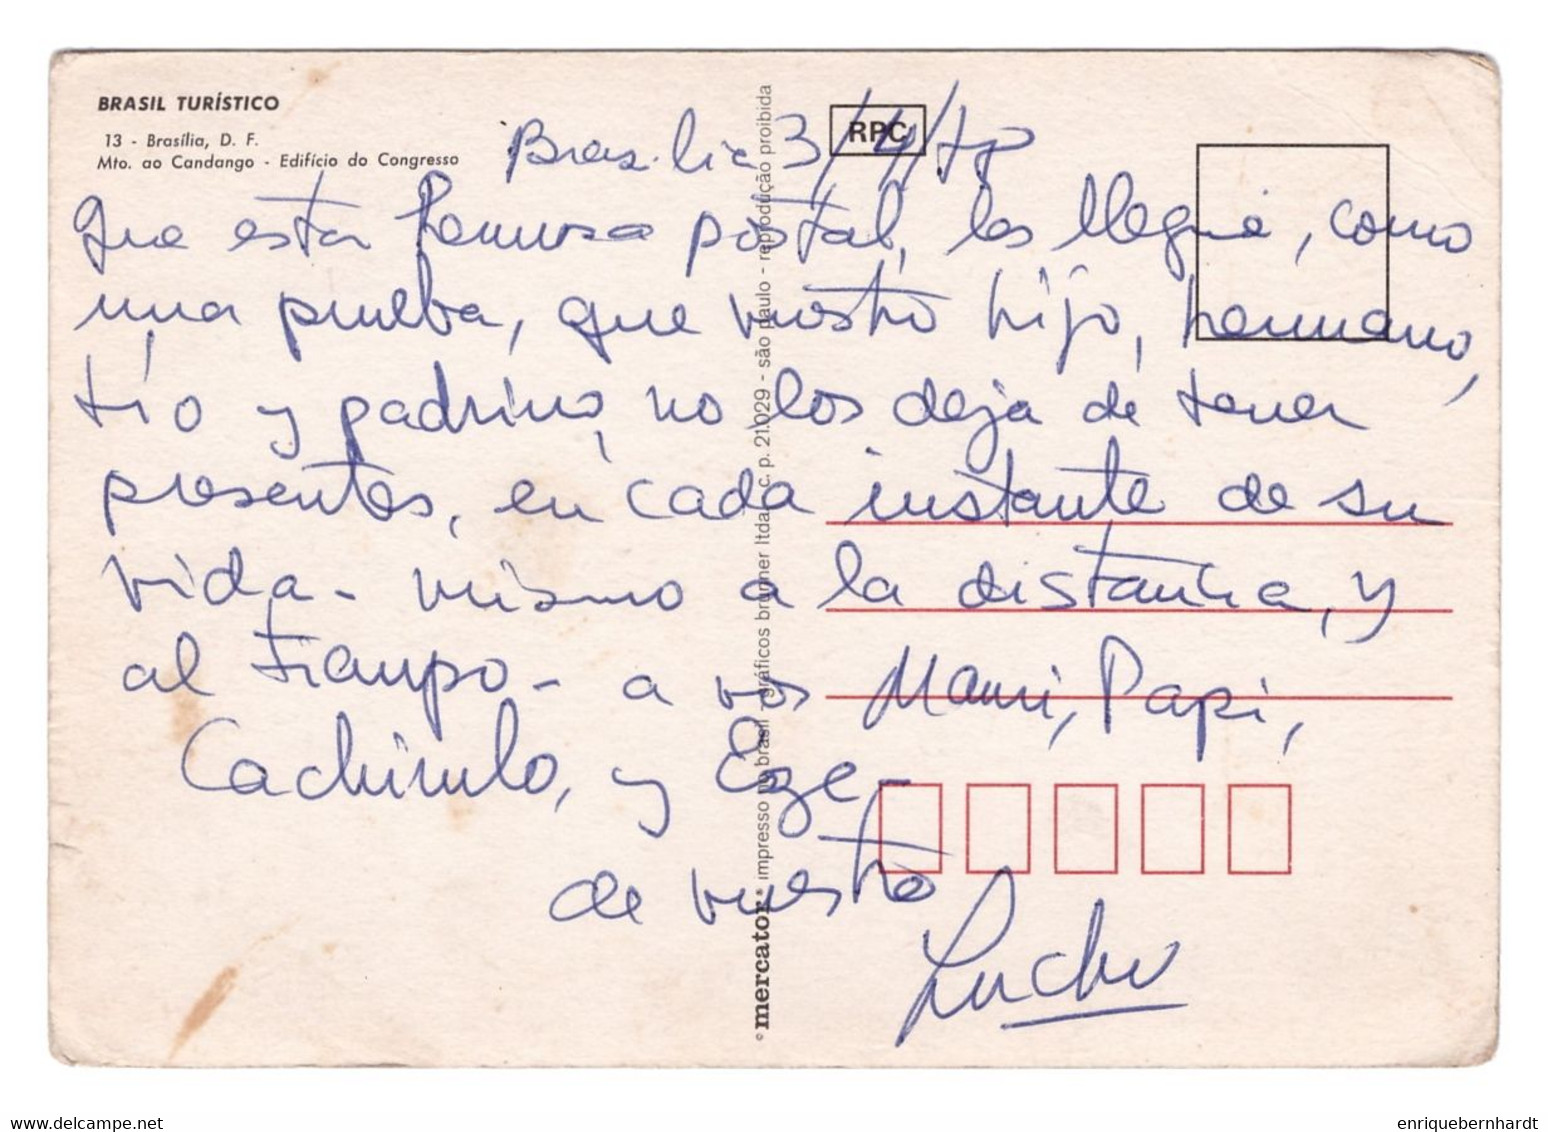 BRASIL TURÍSTICO
13 - Brasília, D. F.
Mto. ao Candango - Edifício do Congresso
RPC
Brasilia 3/4/78
Que esta hermosa postal, les llegue, como
una prueba, que vuestro hijo, hermano,
tío y padrino, no los deja de tener
presentes, en cada instante de su
vida - mismo a la distancia, y
al tiempo - a vos Mami, Papi,
Cachirulo, y Eze
de vuestro
Lucho
© mercator • impresso no brasil - gráficos brunner ltda. - c. p. 21.029 - são paulo - reprodução proibida
www.delcampe.net
enriquebernhardt